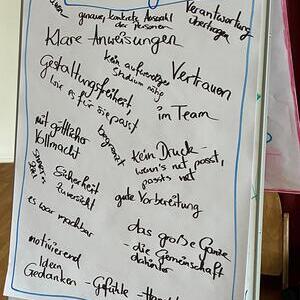 genaue, konkrete Auswahl
der Personen
Verantwortung
übertragen
Klare Anweisungen
kein aufwendiges
Studium nötig
Gestaltungsfreiheit,
wie es für sie passt
Vertrauen
im Team
begrenzt
mit göttlicher
Vollmacht
Kein Druck -
wenn's net passt,
passt's net
Sicherheit
Zuversicht
gute Vorbereitung
es war machbar
das große Ganze
- die Gemeinschaft
dahinter
motivierend
Ideen
Gedanken - Gefühle -